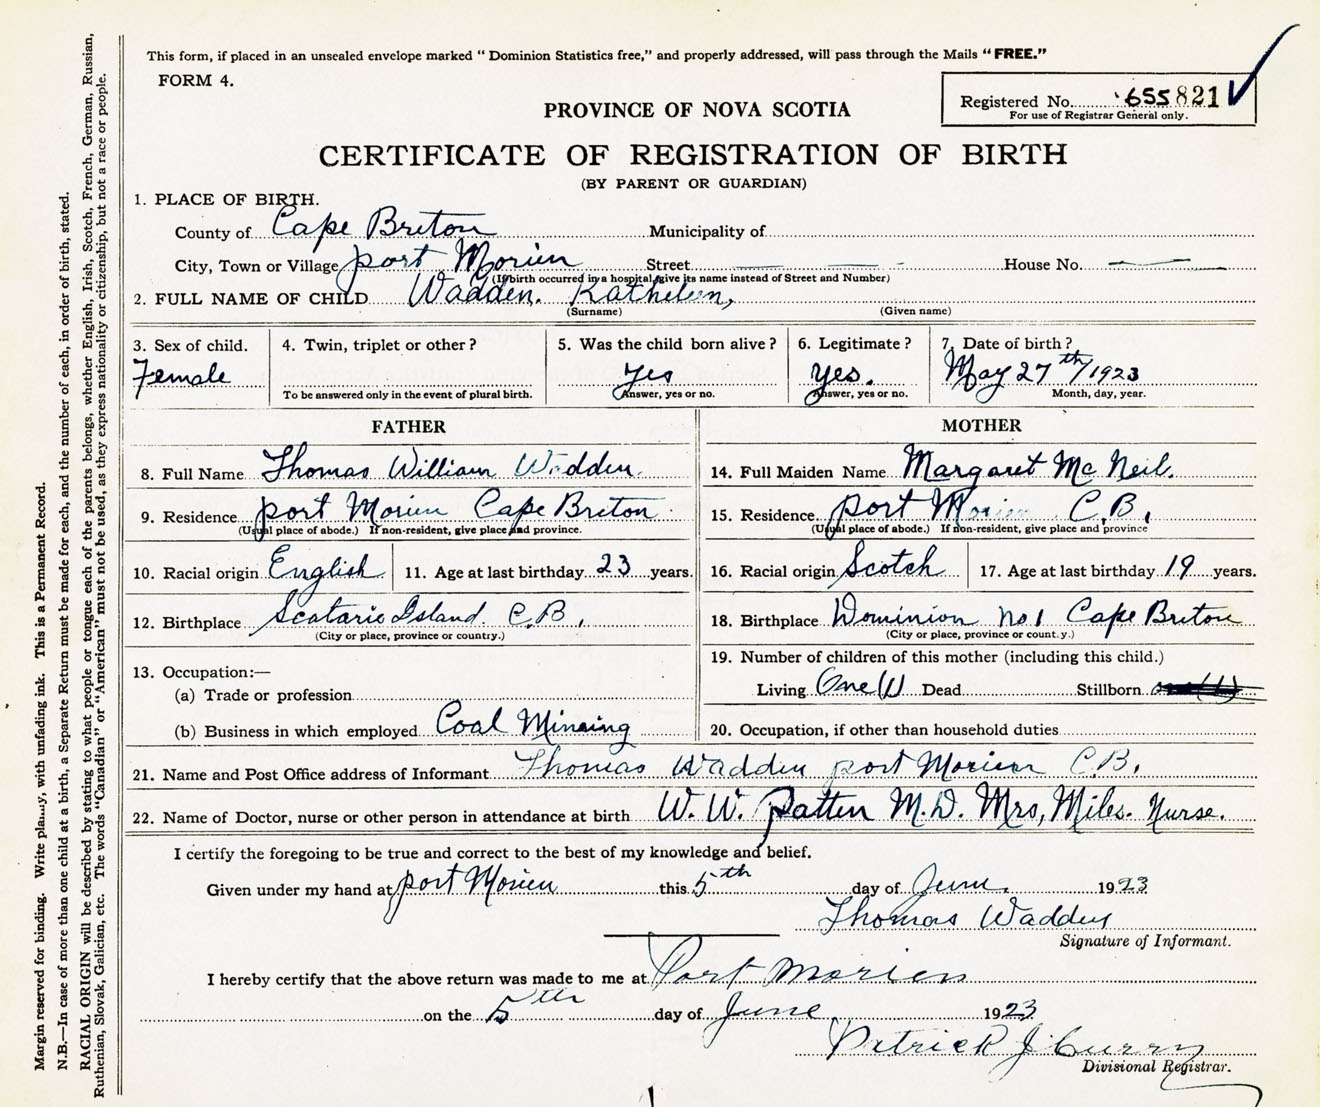 This form, if placed in an unsealed envelope marked “ Dominion Statistics free,” and properly addressed, will pass through the Mails “ FREE.”
FORM 4.
Registered No. 655821
For use of Registrar General only.
PROVINCE OF NOVA SCOTIA
CERTIFICATE OF REGISTRATION OF BIRTH
(BY PARENT OR GUARDIAN)
1. PLACE OF BIRTH.
County of Cape Breton Municipality of
City, Town or Village port Morien Street House No.
(If birth occurred in a hospital, give its name instead of Street and Number)
2. FULL NAME OF CHILD Wadden. Kathleen,
(Surname) (Given name)
3. Sex of child. 4. Twin, triplet or other ? 5. Was the child born alive ? 6. Legitimate ? 7. Date of birth ?
Female yes yes. May 27th/1923
To be answered only in the event of plural birth. Answer, yes or no. Answer, yes or no. Month, day, year.
FATHER MOTHER
8. Full Name Thomas William Wadden. 14. Full Maiden Name Margaret Mc Neil.
9. Residence port Morien Cape Breton 15. Residence port Morien C.B.
(Usual place of abode.) If non-resident, give place and province. (Usual place of abode.) If non-resident, give place and province
10. Racial origin English 11. Age at last birthday 23 years. 16. Racial origin Scotch 17. Age at last birthday 19 years.
12. Birthplace Scatarie Island. C.B. 18. Birthplace Dominion No 1 Cape Breton
(City or place, province or country.) (City or place, province or count.y.)
13. Occupation:— 19. Number of children of this mother (including this child.)
(a) Trade or profession Living One (1) Dead Stillborn
(b) Business in which employed Coal Minning 20. Occupation, if other than household duties
21. Name and Post Office address of Informant Thomas Wadden port Morien C.B.
22. Name of Doctor, nurse or other person in attendance at birth W. W. Patten M.D. Mrs, Miles. Nurse.
I certify the foregoing to be true and correct to the best of my knowledge and belief.
Given under my hand at port Morien this 5th day of June. 1923
Thomas Wadden
Signature of Informant.
I hereby certify that the above return was made to me at Port Morien
on the 5th day of June 1923
Patrick J Curry
Divisional Registrar.
Margin reserved for binding. Write plainly, with unfading ink. This is a Permanent Record.
N.B.—In case of more than one child at a birth, a Separate Return must be made for each, and the number of each, in order of birth, stated.
RACIAL ORIGIN will be described by stating to what people or tongue each of the parents belongs, whether English, Irish, Scotch, French, German, Russian,
Ruthenian, Slovak, Galician, etc. The words “Canadian” or “American” must not be used, as they express nationality or citizenship, but not a race or people.